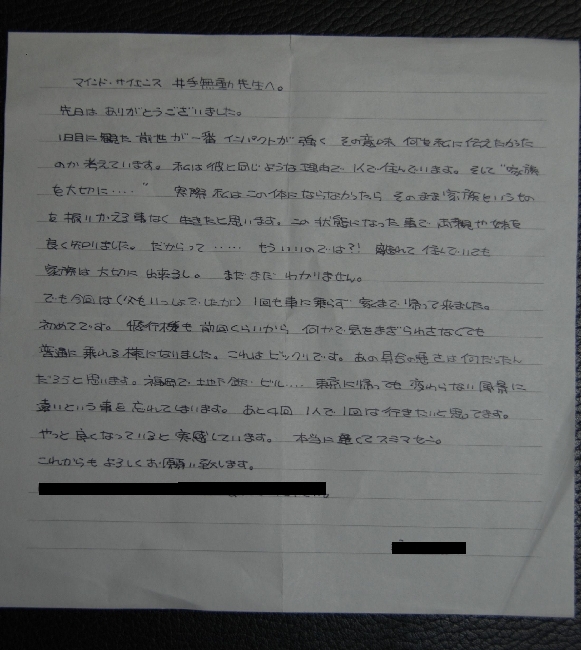 マインド・サイエンス 井手無動先生へ。
先日は ありがとうございました。
1日目に観た 前世が一番 インパクトが強く その意味 何を私に伝えたかった
のか考えています。私は彼と同じような理由で 1人で住んでいます。そして "家族
を大切に・・・・" 実際 私はこの体にならなかったら そのまま家族というもの
を振りかえる事なく 生きたと思います。この状態になった事で 両親や
良く知りました。だからって ・・・・・ もういいのでは?! 離れて 住んでいても
家族は大切に 出来るし。 まだまだ わかりません。
でも今回は(父もいっしょでしたが) 1回も車に乗らず 家まで帰って来ました。
初めてです。 飛行機も 前回くらいから 何かで気をまぎらわさなくても
普通に乗れる様になりました。これはビックリです。あの具合の悪さは何だったん
だろうと思います。福岡で 地下鉄・ビル・・・ 東京に帰っても 変わらない風景に
遠いという事を 忘れてしまいます。 あと4回 1人で 1回は行きたいと思ってます。
やっと良くなっていると 実感しています。 本当に遅くてスミマセン。
これからも よろしくお願い致します。